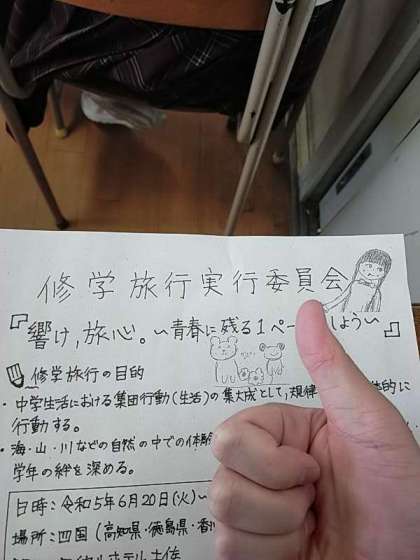 修学旅行実行委員会
『響け,旅心。～青春に残る1ペー しよう～』
修学旅行の目的
・中学生活における集団行動(生活)の集大成として,規律 的に
行動する。
・海・山・川などの自然の中での体験
学年の絆を深める。
日時:令和5年6月20日(火)～
場所:四国(高知県・徳島県・香